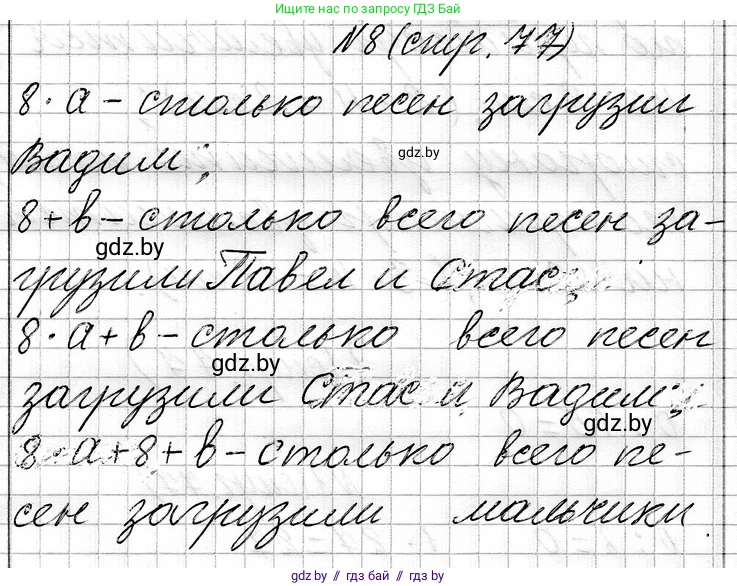 Ищите нас по запросу ГДЗ Бай
№8 (стр. 77)
8·а – столько песен загрузил
Вадим;
gdz.by
8+в – столько всего песен за-
gdz.by
грузили Павел и Стас;
8·а+в – столько всего песен
gdz.by
загрузили Стас и Вадим;
gdz.by
8·а+8+в – столько всего пе-
сен загрузили мальчики.
gdz.by // гдз бай // gdz.by